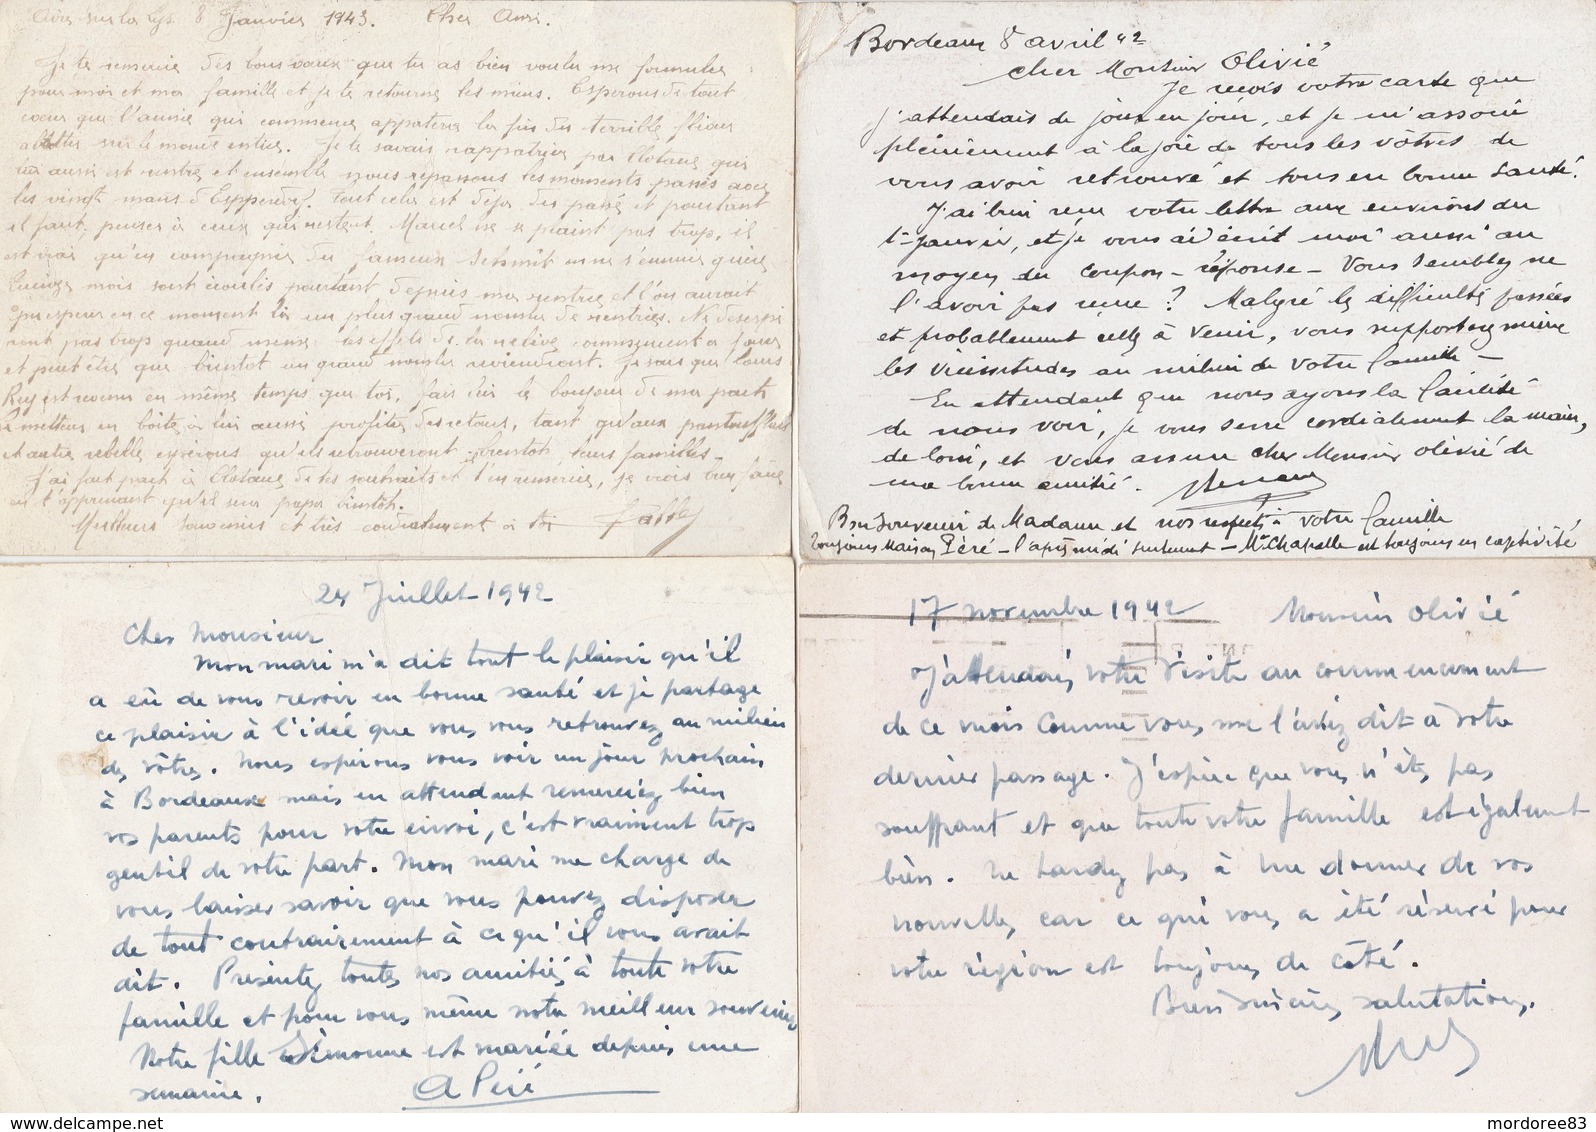 Aire sur la Lys 8 Janvier 1943. Cher Ami.
Je te remercie des bons vœux que tu as bien voulu me formuler
pour moi et ma famille et je te retourne les miens. Esperons de tout
coeur que l'année qui commence apportera la fin du terrible fléau
sur le monde entier. Je te savais rappatrier par Clotaire qui
lui aussi est rentré et ensemble nous repassons les moments passés avec
les vingt mans d'Espperede. Tout cela est déja du passé et pourtant
il faut penser à ceux qui restent. Marcel ne se plaint pas trop, il
est vrai qu'en compagnie du fameux Schmit on ne s'ennuie guère
Quinze mois sont écoulés pourtant depuis ma rentrée et l'on aurait
espérer en ce moment là un plus grand nombre de rentrées. Ne desespe
ront pas trop quand meme. les effets de la relève commencent a
et peut être que bientot un grand nombre reviendront. Je sais que Louis
Rey est revenu en même temps que toi, fais lui le bonjour de ma part
metteur en boîte à lui aussi profiter du retour, tant qu'aux
et autre rebelle esperons qu'ils retrouveront bientot leurs familles -
J'ai fait part à Clotaire de tes souhaits et t'en remercie, je crois bien faire
en t'apprenant qu'il sera papa bientot.
Meilleurs souvenirs et très cordialement à toi
Bordeaux 8 avril 42
cher Monsieur Olivié
Je reçois votre carte que
j'attendais de jour en jour, et je m'associe
pleinement à la joie de tous les vôtres de
vous avoir retrouvé et tous en bonne santé.
J'ai bien reçu votre lettre aux environs du
1er janvier, et je vous ai écrit moi aussi au
moyen du coupon - réponse - Vous semblez ne
l'avoir pas reçue ? Malgré les difficultés passées
et probablement celles à venir, vous supporterez mieux
les vicissitudes au milieu de votre famille -
En attendant que nous ayons la facilité
de nous voir, je vous serre cordialement la main,
de loin, et vous assure cher Monsieur Olivié de
ma bonne amitié.
Bon souvenir de Madame et nos respects à votre famille
toujours Maison Péré - l'après midi seulement - Mr Chapelle est toujours en captivité
24 Juillet 1942
Cher Monsieur
Mon mari m'a dit tout le plaisir qu'il
a eû de vous revoir en bonne santé et je partage
ce plaisir à l'idée que vous vous retrouvez au milieu
des vôtres. Nous espérons vous voir un jour prochain
à Bordeaux mais en attendant remerciez bien
vos parents pour votre envoi, c'est vraiment trop
gentil de votre part. Mon mari me charge de
vous laisser savoir que vous pouvez disposer
de tout contrairement à ce qu'il vous avait
dit. Présentez toutes nos amitiés à toute votre
famille et pour vous même notre meilleur souvenir
Notre fille Simonne est mariée depuis une
semaine. A Péré
17 novembre 1942 Monsieur Olivié
J'attendais votre visite au commencement
de ce mois comme vous me l'aviez dit à votre
dernier passage. J'espère que vous n'êtes pas
souffrant et que toute votre famille est également
bien. Ne tardez pas à me donner de vos
nouvelles car ce qui vous a été réservé pour
votre région est toujours de côté.
Bien sincères salutations.
mordoree83